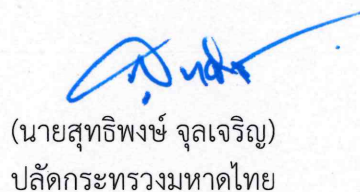 (นายสุทธิพงษ์ จุลเจริญ)
ปลัดกระทรวงมหาดไทย